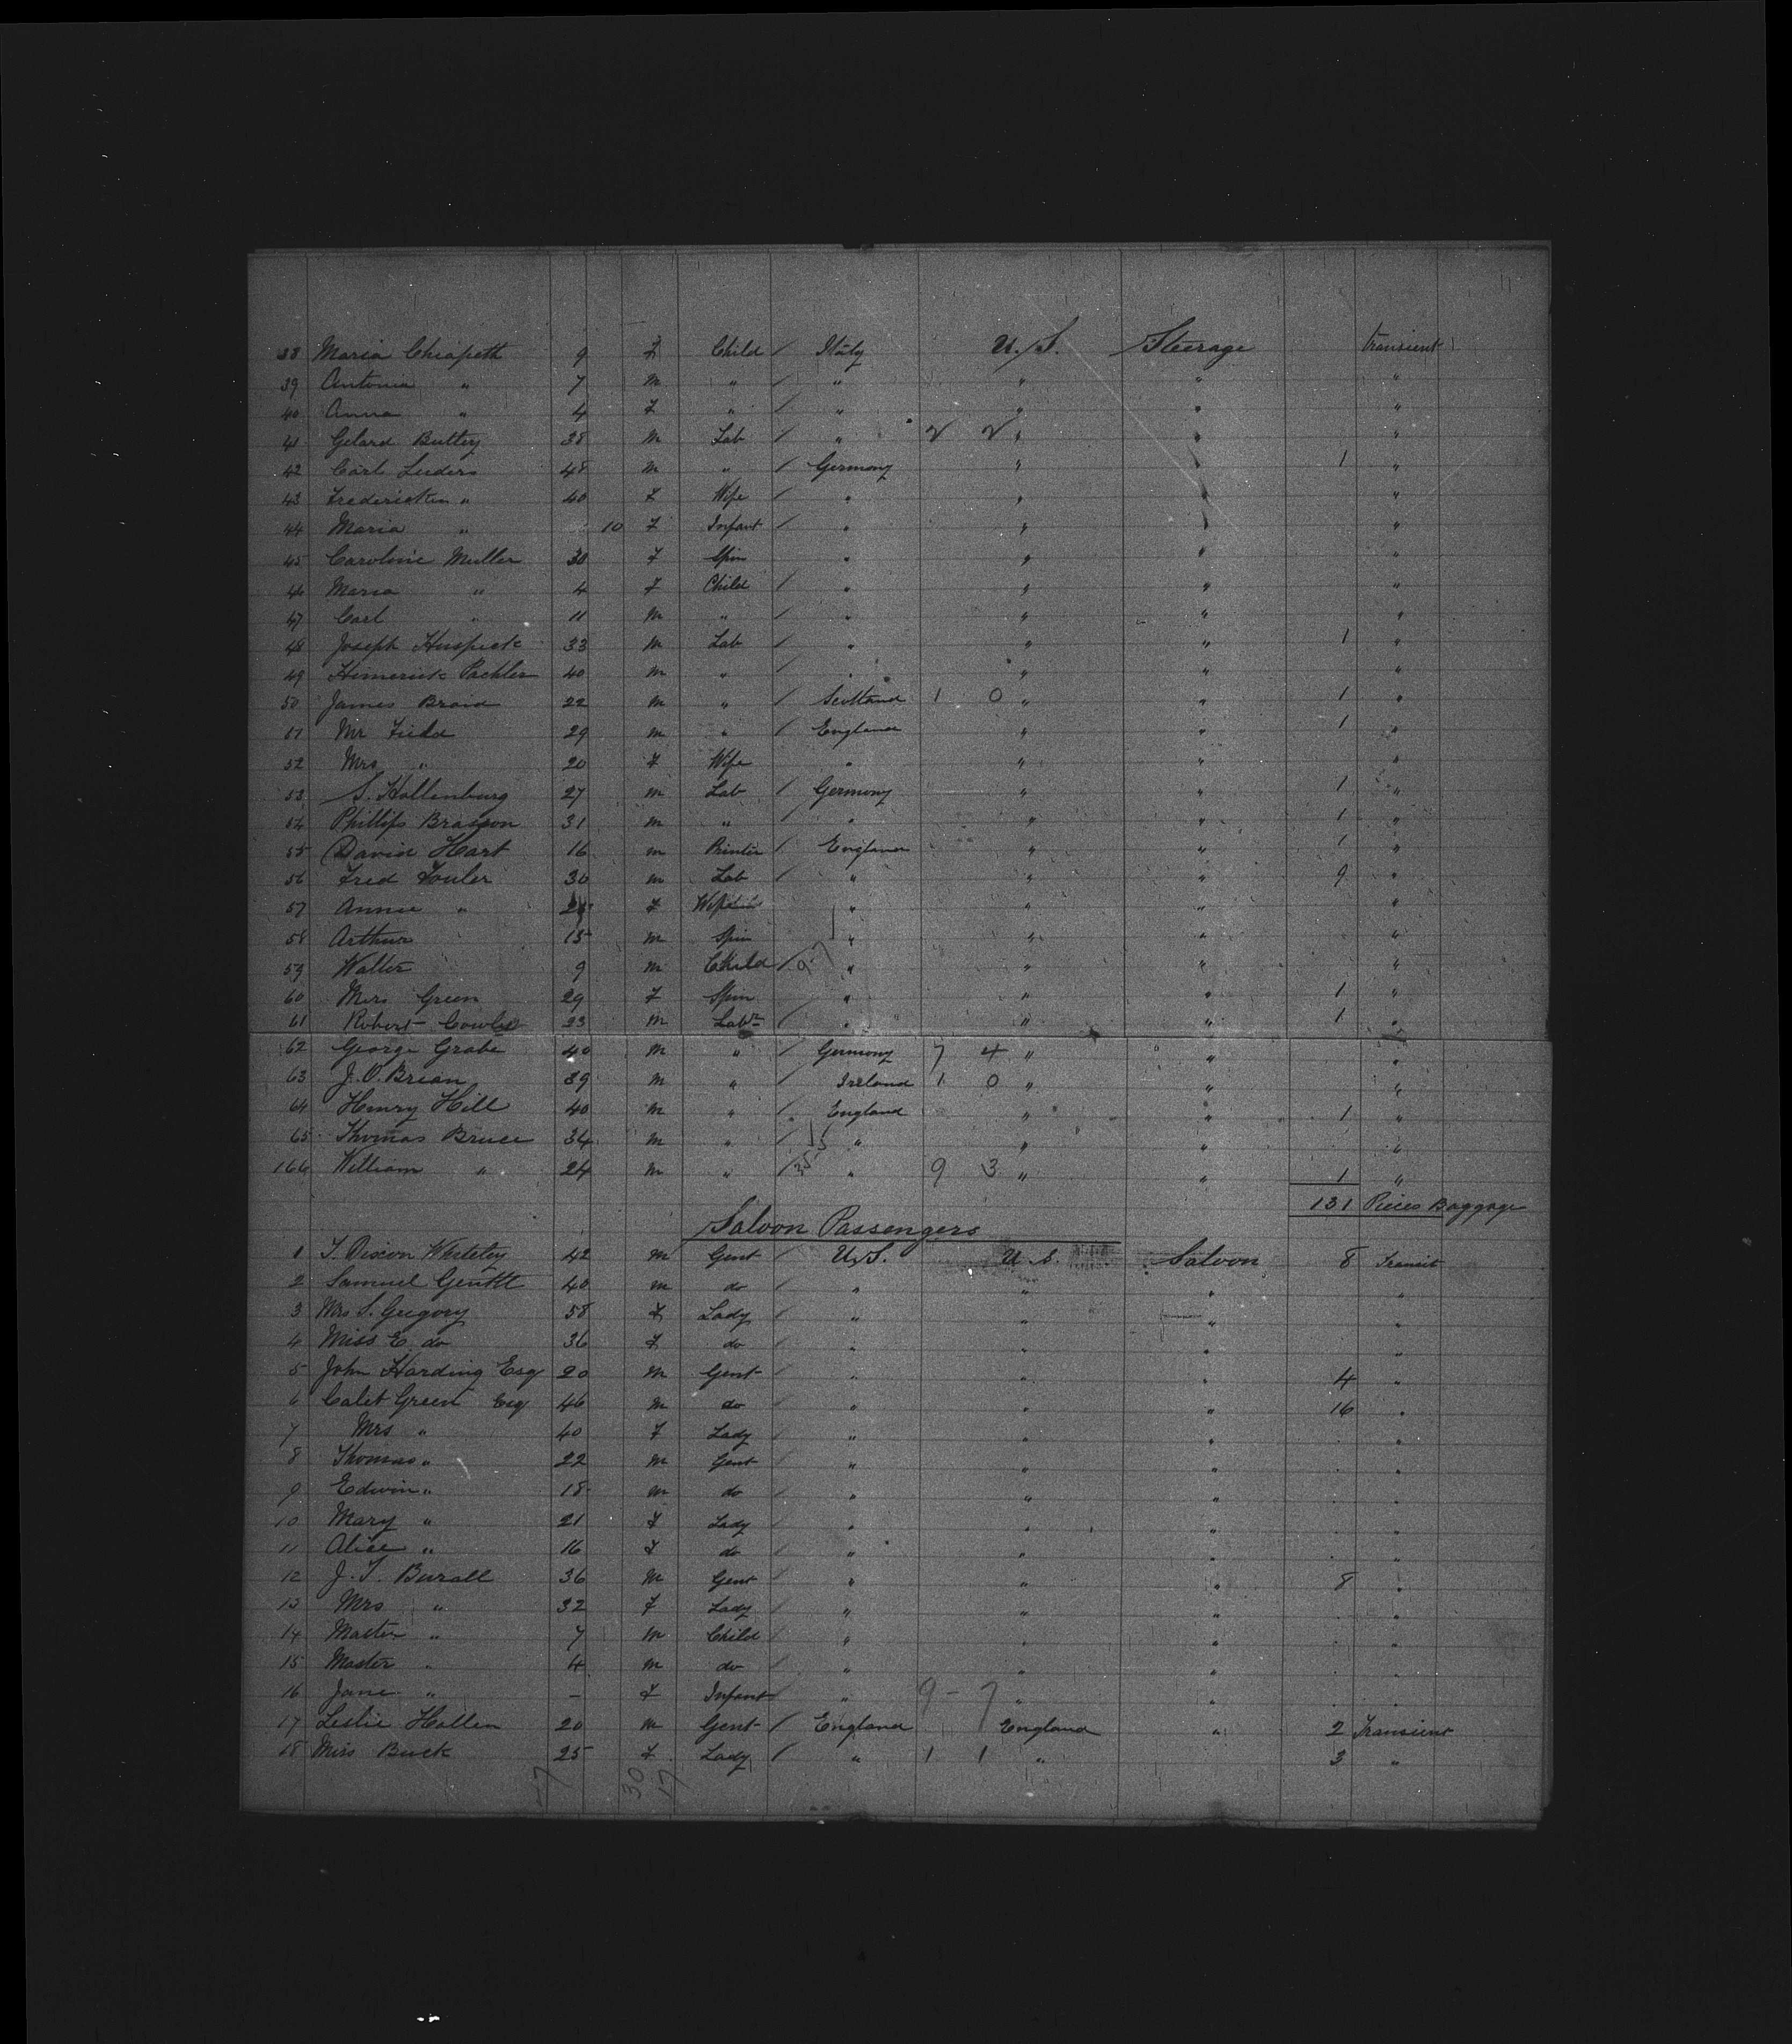 38 Maria Chiapeth 9 F Child / Italy U.S. Steerage transient
39 Antonia " 7 M " / " " " "
40 Anna " 4 F " / " " " "
41 Gelard Buttey 38 M Lab / " 2 2 " " "
42 Carl Luders 48 M " / Germony " " 1 "
43 " 40 F Wife / " " " "
44 Maria " 10 F Infant / " " " "
45 Caroline Muller 30 F Spin " " " "
46 Maria " 4 F Child / " " " "
47 Carl " 11 M " / " " " "
48 Joseph 33 M Lab / " " " 1 "
49 Pachler 40 M " / " " " "
50 James Braid 22 M " / Scotland 1 0 " " 1 "
51 Mr Field 29 M " / England " " 1 "
52 Mrs " 20 F Wife " " " "
53 S. Hollenburg 27 M Lab / Germony " " 1 "
54 Phillips 31 M " / " " " 1 "
55 David Hart 16 M Printer / England " " 1 "
56 Fred Fouler 30 M Lab / " " " 9 "
57 Annie " F " " " "
58 Arthur 15 M Spin " " " "
59 Walter 9 M Child / " " " "
60 Green 29 F Spin " " " 1 "
61 Robert 23 M Labr / " " " 1 "
62 George Grabe 40 M " / Germony 7 4 " " "
63 J. O. Brean 39 M " / Ireland 1 0 " " "
64 Henry Hill 40 M " / England " " 1 "
65 Thomas Bruce 34 M " / " " " "
166 William " 24 M " / " 9 3 " " 1 "
131 Pieces Baggage
Saloon Passengers
1 T. Dixon 42 M Gent / U.S. U.S. Saloon 8 Transit
2 Samuel 40 M do / " " " "
3 Mrs S. Gregory 58 F Lady / " " " "
4 Miss E do 36 F do / " " " "
5 John Harding Esq 20 M Gent / " " " 4 "
6 Caleb Green Esq 46 M do / " " " 16 "
7 Mrs " 40 F Lady / " " " "
8 Thomas " 22 M Gent / " " " "
9 Edwin " 18 M do / " " " "
10 Mary " 21 F Lady / " " " "
11 Alice " 16 F do / " " " "
12 J. T. Burall 36 M Gent / " " " 8 "
13 Mrs " 32 F Lady / " " " "
14 Master " 7 M Child / " " " "
15 Master " 4 M do / " " " "
16 Jane " – F Infant / " 9 - 7 " " "
17 Leslie Hollen 20 M Gent / England England " 2 Transient
18 Miss Buck 25 F Lady / " 1 1 " 3 "
30 17